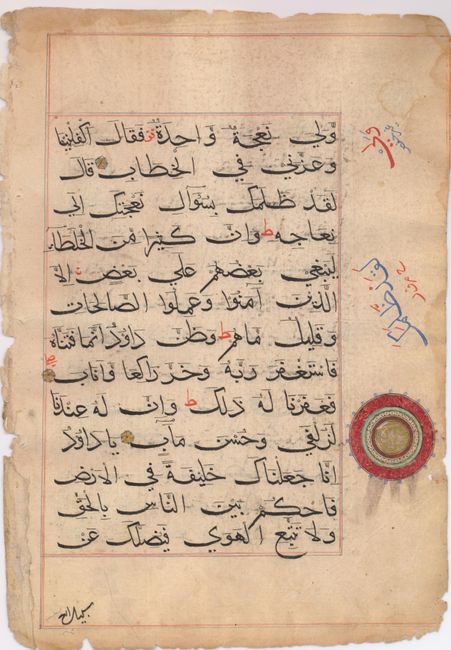 وَّلِيَ نَعْجَةٌ وَّاحِدَةٌ فَقَالَ اَكْفِلْنِيْهَا
وَعَزَّنِيْ فِي الْخِطَابِ قَالَ
لَقَدْ ظَلَمَكَ بِسُؤَالِ نَعْجَتِكَ اِلٰى
نِعَاجِهٖ ط وَاِنَّ كَثِيْرًا مِّنَ الْخُلَطَاءِ
لَيَبْغِيْ بَعْضُهُمْ عَلٰى بَعْضٍ اِلَّا
الَّذِيْنَ اٰمَنُوْا وَعَمِلُوا الصَّالِحَاتِ
وَقَلِيْلٌ مَّا هُمْ ط وَظَنَّ دَاوٗدُ اَنَّمَا فَتَنَّاهُ
فَاسْتَغْفَرَ رَبَّهٗ وَخَرَّ رَاكِعًا وَّاَنَابَ
فَغَفَرْنَا لَهٗ ذٰلِكَ ط وَاِنَّ لَهٗ عِنْدَنَا
لَزُلْفٰى وَحُسْنَ مَاٰبٍ يَا دَاوٗدُ
اِنَّا جَعَلْنَاكَ خَلِيْفَةً فِي الْاَرْضِ
فَاحْكُمْ بَيْنَ النَّاسِ بِالْحَقِّ
وَلَا تَتَّبِعِ الْهَوٰى فَيُضِلَّكَ عَنْ